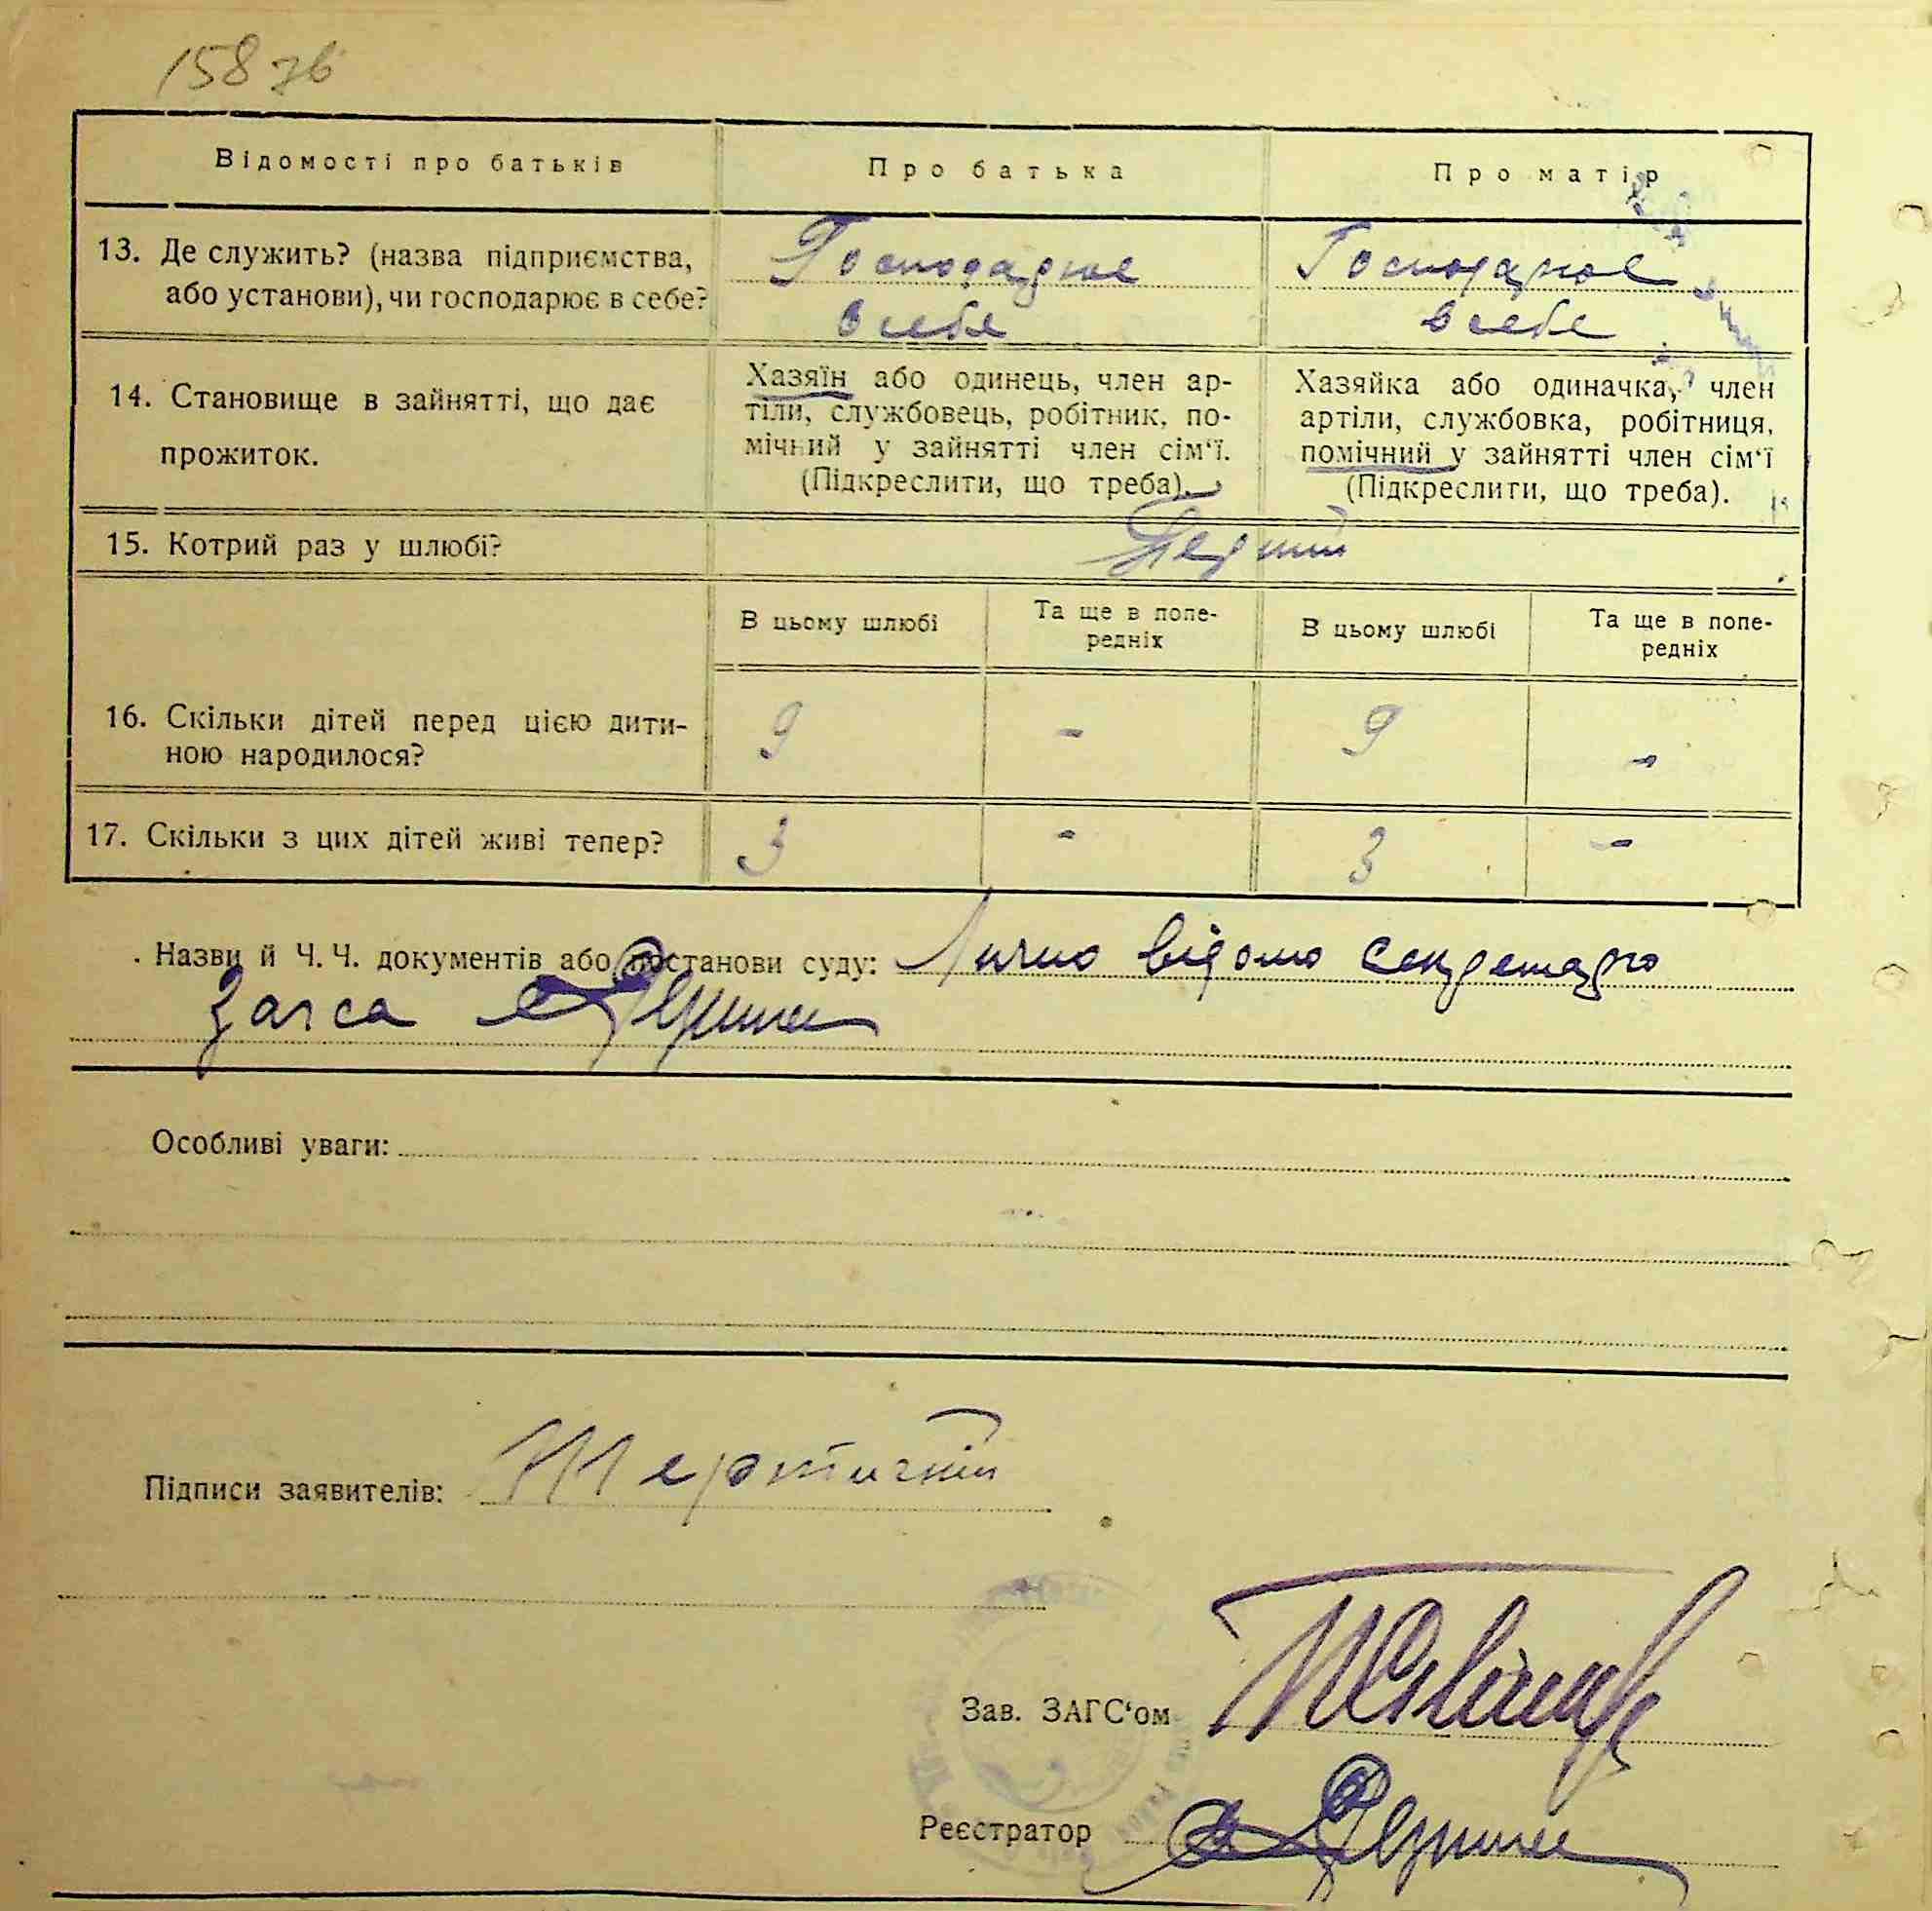 158 зв
Відомості про батьків
Про батька
Про матір
13. Де служить? (назва підприємства,
або установи), чи господарює в себе?
Господарює
в себе
Господарює
в себе
14. Становище в зайнятті, що дає
прожиток.
Хазяїн або одинець, член ар-
тіли, службовець, робітник, по-
мічний у зайнятті член сім‘ї.
(Підкреслити, що треба).
Хазяйка або одиначка, член
артіли, службовка, робітниця,
помічний у зайнятті член сім‘ї
(Підкреслити, що треба).
15. Котрий раз у шлюбі?
Перший
В цьому шлюбі
Та ще в попе-
редніх
В цьому шлюбі
Та ще в попе-
редніх
16. Скільки дітей перед цією дити-
ною народилося?
9 - 9 -
17. Скільки з цих дітей живі тепер?
3 - 3 -
Назви й Ч. Ч. документів або постанови суду: Лично відомо секретарю
загса
Особливі уваги:
Підписи заявителів:
Зав. ЗАГС‘ом
Реєстратор